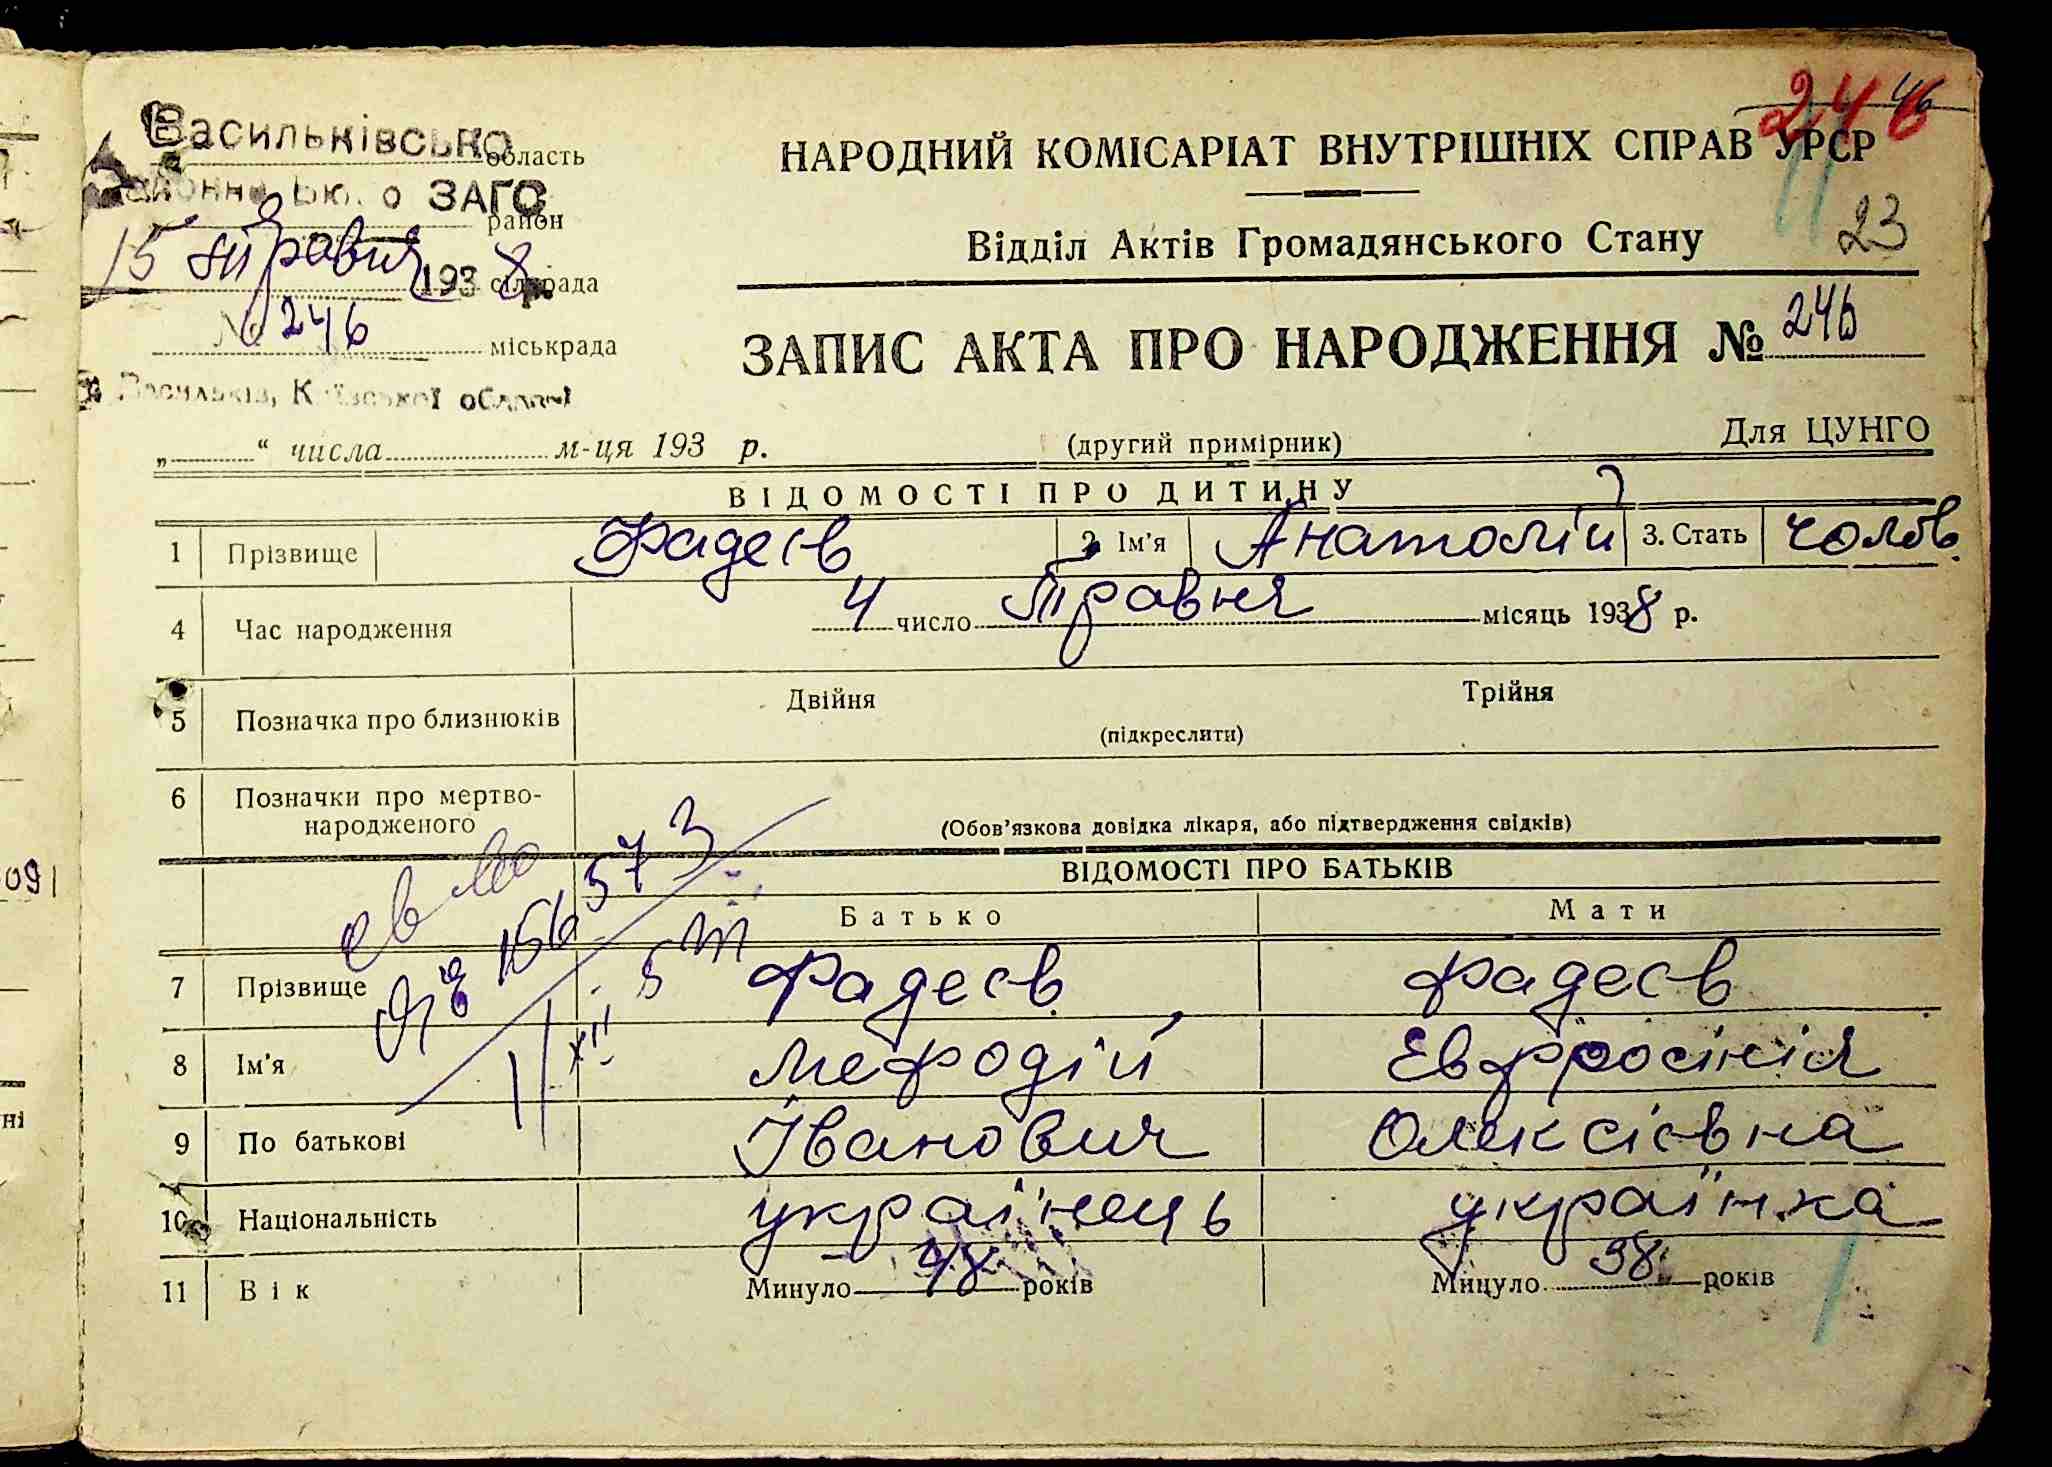 Васильківсько область
ЗАГС район
15 травня 1938 р. сільрада
№ 246 міськрада
Васильків, Київської області
„ “ числа м-ця 193 р.
246
46
НАРОДНИЙ КОМІСАРІАТ ВНУТРІШНІХ СПРАВ УРСР
23
Відділ Актів Громадянського Стану
ЗАПИС АКТА ПРО НАРОДЖЕННЯ № 246
(другий примірник) Для ЦУНГО
ВІДОМОСТІ ПРО ДИТИНУ
1 Прізвище Фадеєв 2 Ім'я Анатолій 3. Стать чолов.
4 Час народження 4 число Травня місяць 1938 р.
5 Позначка про близнюків Двійня Трійня
(підкреслити)
6 Позначки про мертво-
народженого
(Обов'язкова довідка лікаря, або підтвердження свідків)
ВІДОМОСТІ ПРО БАТЬКІВ
Батько Мати
7 Прізвище Фадеєв Фадеєв
8 Ім'я Мефодій Евфросінія
9 По батькові Іванович Олексієвна
10 Національність українець українка
11 Вік Минуло 48 років Минуло 38 років
156573
XII
091
ні